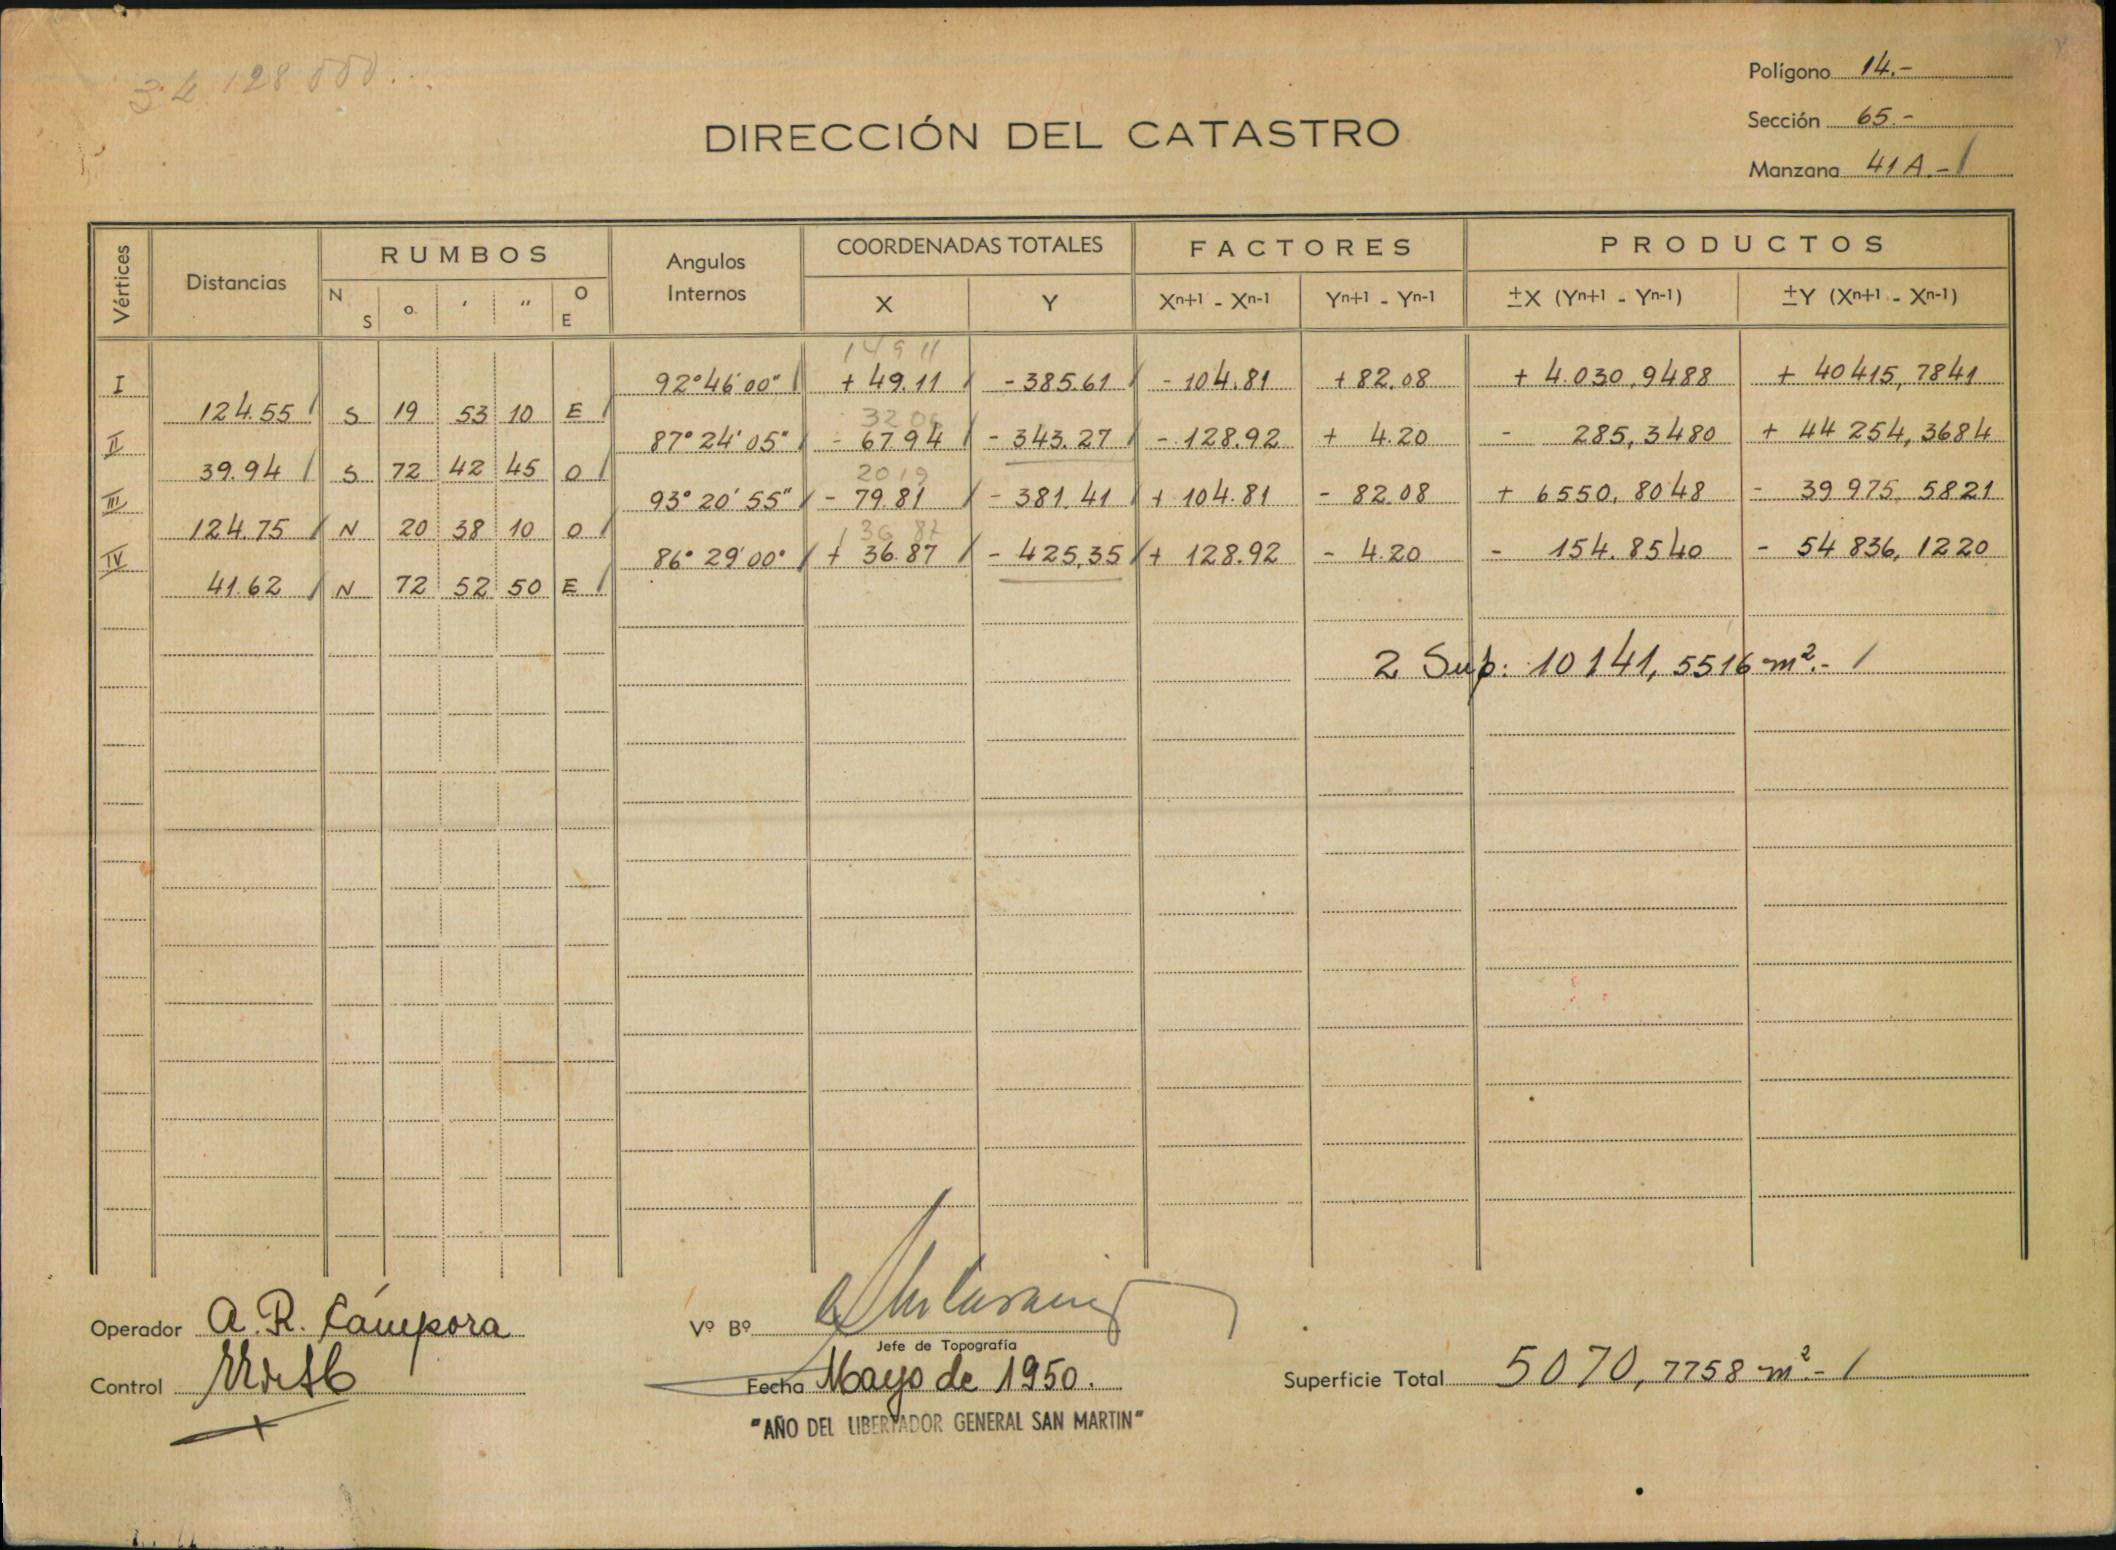 34 128 000..
Polígono 14.-
Sección 65.-
Manzana 41 A.-/
DIRECCIÓN DEL CATASTRO
Vértices Distancias RUMBOS Angulos Internos COORDENADAS TOTALES FACTORES PRODUCTOS
N S o. ′ ″ O E X Y Xn+1 - Xn-1 Yn+1 - Yn-1 ±X (Yn+1 - Yn-1) ±Y (Xn+1 - Xn-1)
14911
I 92°46'00" / + 49.11 / - 385.61 / - 104.81 + 82.08 + 4.030,9488 + 40415,7841
124.55 / S 19 53 10 E /
3206
II 87°24'05" - 67.94 / - 343.27 / - 128.92 + 4.20 - 285,3480 + 44 254,3684
39.94 / S 72 42 45 O /
2019
III 93°20'55" / - 79.81 / - 381.41 / + 104.81 - 82.08 + 6550,8048 - 39 975,5821
124.75 / N 20 38 10 O /
136 87
IV 86°29'00" / + 36.87 / - 425,35 / + 128.92 - 4.20 - 154.8540 - 54 836,1220
41.62 / N 72 52 50 E /
2 Sup: 10141,5516 m².- /
Operador A. R. Cámpora
Vº Bº
Jefe de Topografía
Control
Fecha Mayo de 1950.
Superficie Total 5070,7758 m².- /
"AÑO DEL LIBERTADOR GENERAL SAN MARTIN"